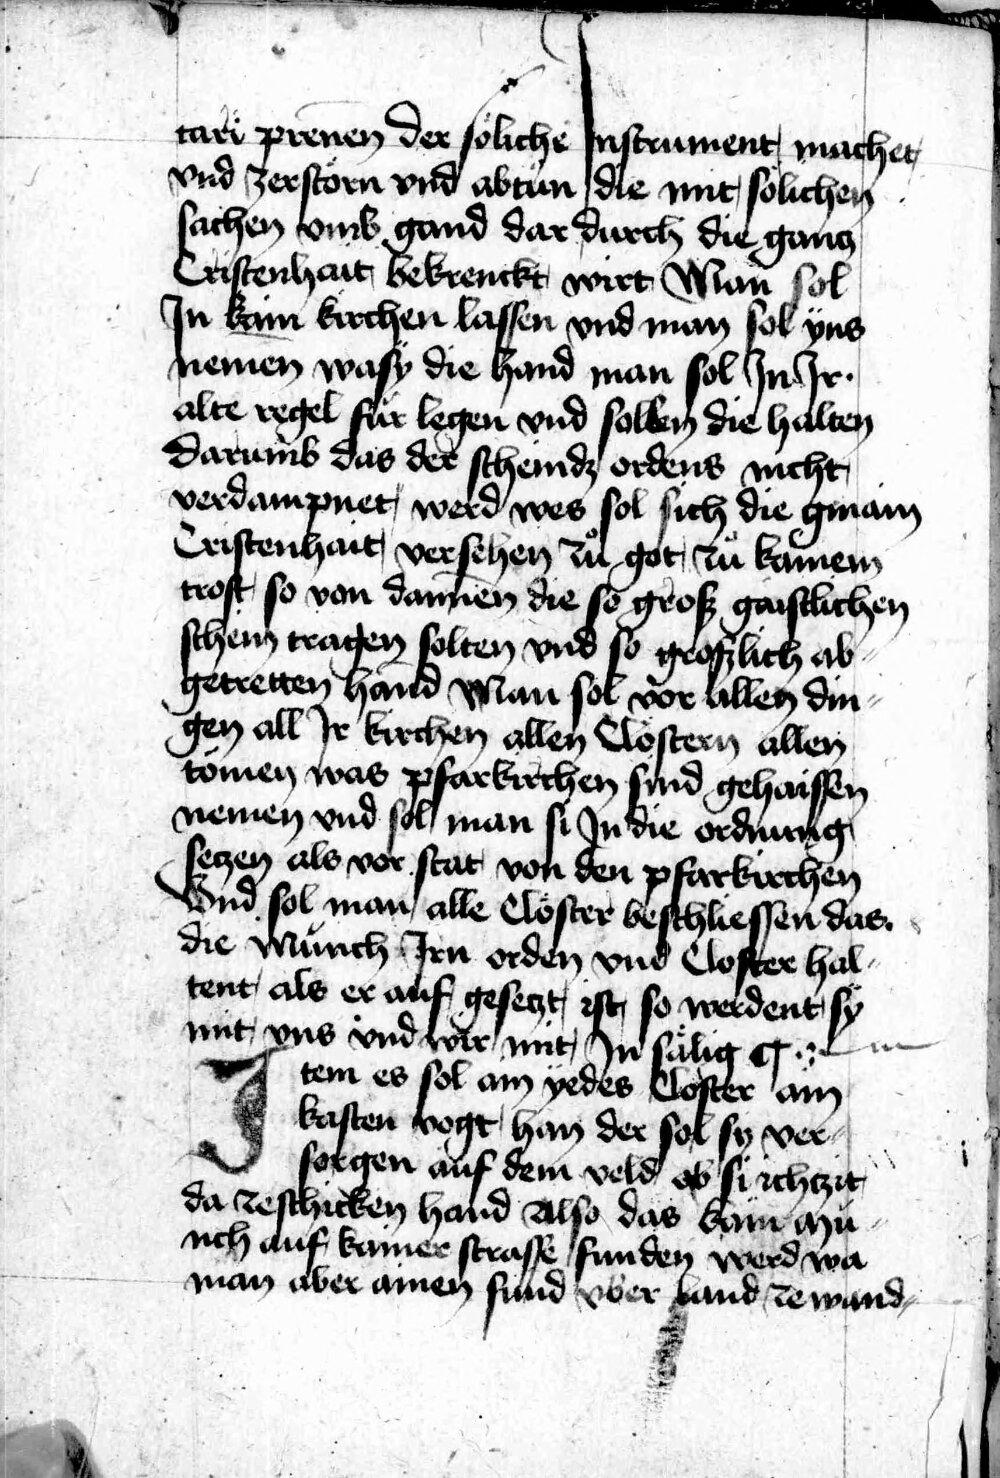 tari prenen der söliche Instrument machet
vnd zerstörn vnd abtůn die mit sölichen
sachen vmb gand dar durch die gantz
Cristenhait bekrenckt wirt Man sol
In kain kirchen lassen vnd man sol yns
nemen wasy die hand man sol In Ir
alte regel für legen vnd sollen die halten
darumb das der scheindz ordens nicht
verdampnet werd wes sol sich die gmain
Cristenhait versehen zů got zů kainem
trost so von dannen die so groß gaistlichen
schein tragen solten vnd so großlich ab-
getretten hand Man sol vor allen din-
gen all Ir kirchen allen Clöstern allen
tömen was pfarkirchen sind gehaissen
nemen vnd sol man si In die ordnung
setzen als vor stat von den pfarkirchen
Vnd sol man alle Clöster beschliessen das
die Münch Irn orden vnd Closter hal-
tent als er auf gesetzt ist so werdent sÿ
mit vns vnd wir mit In sälig
Item es sol am yedes Closter ain
kasten vogt han der sol sy ver-
sorgen auf dem veld ob si ichtzit
da zeschicken hand Also das kain mü-
nch auf kainer strasse funden werd wa
man aber ainen fund vber land zewand-